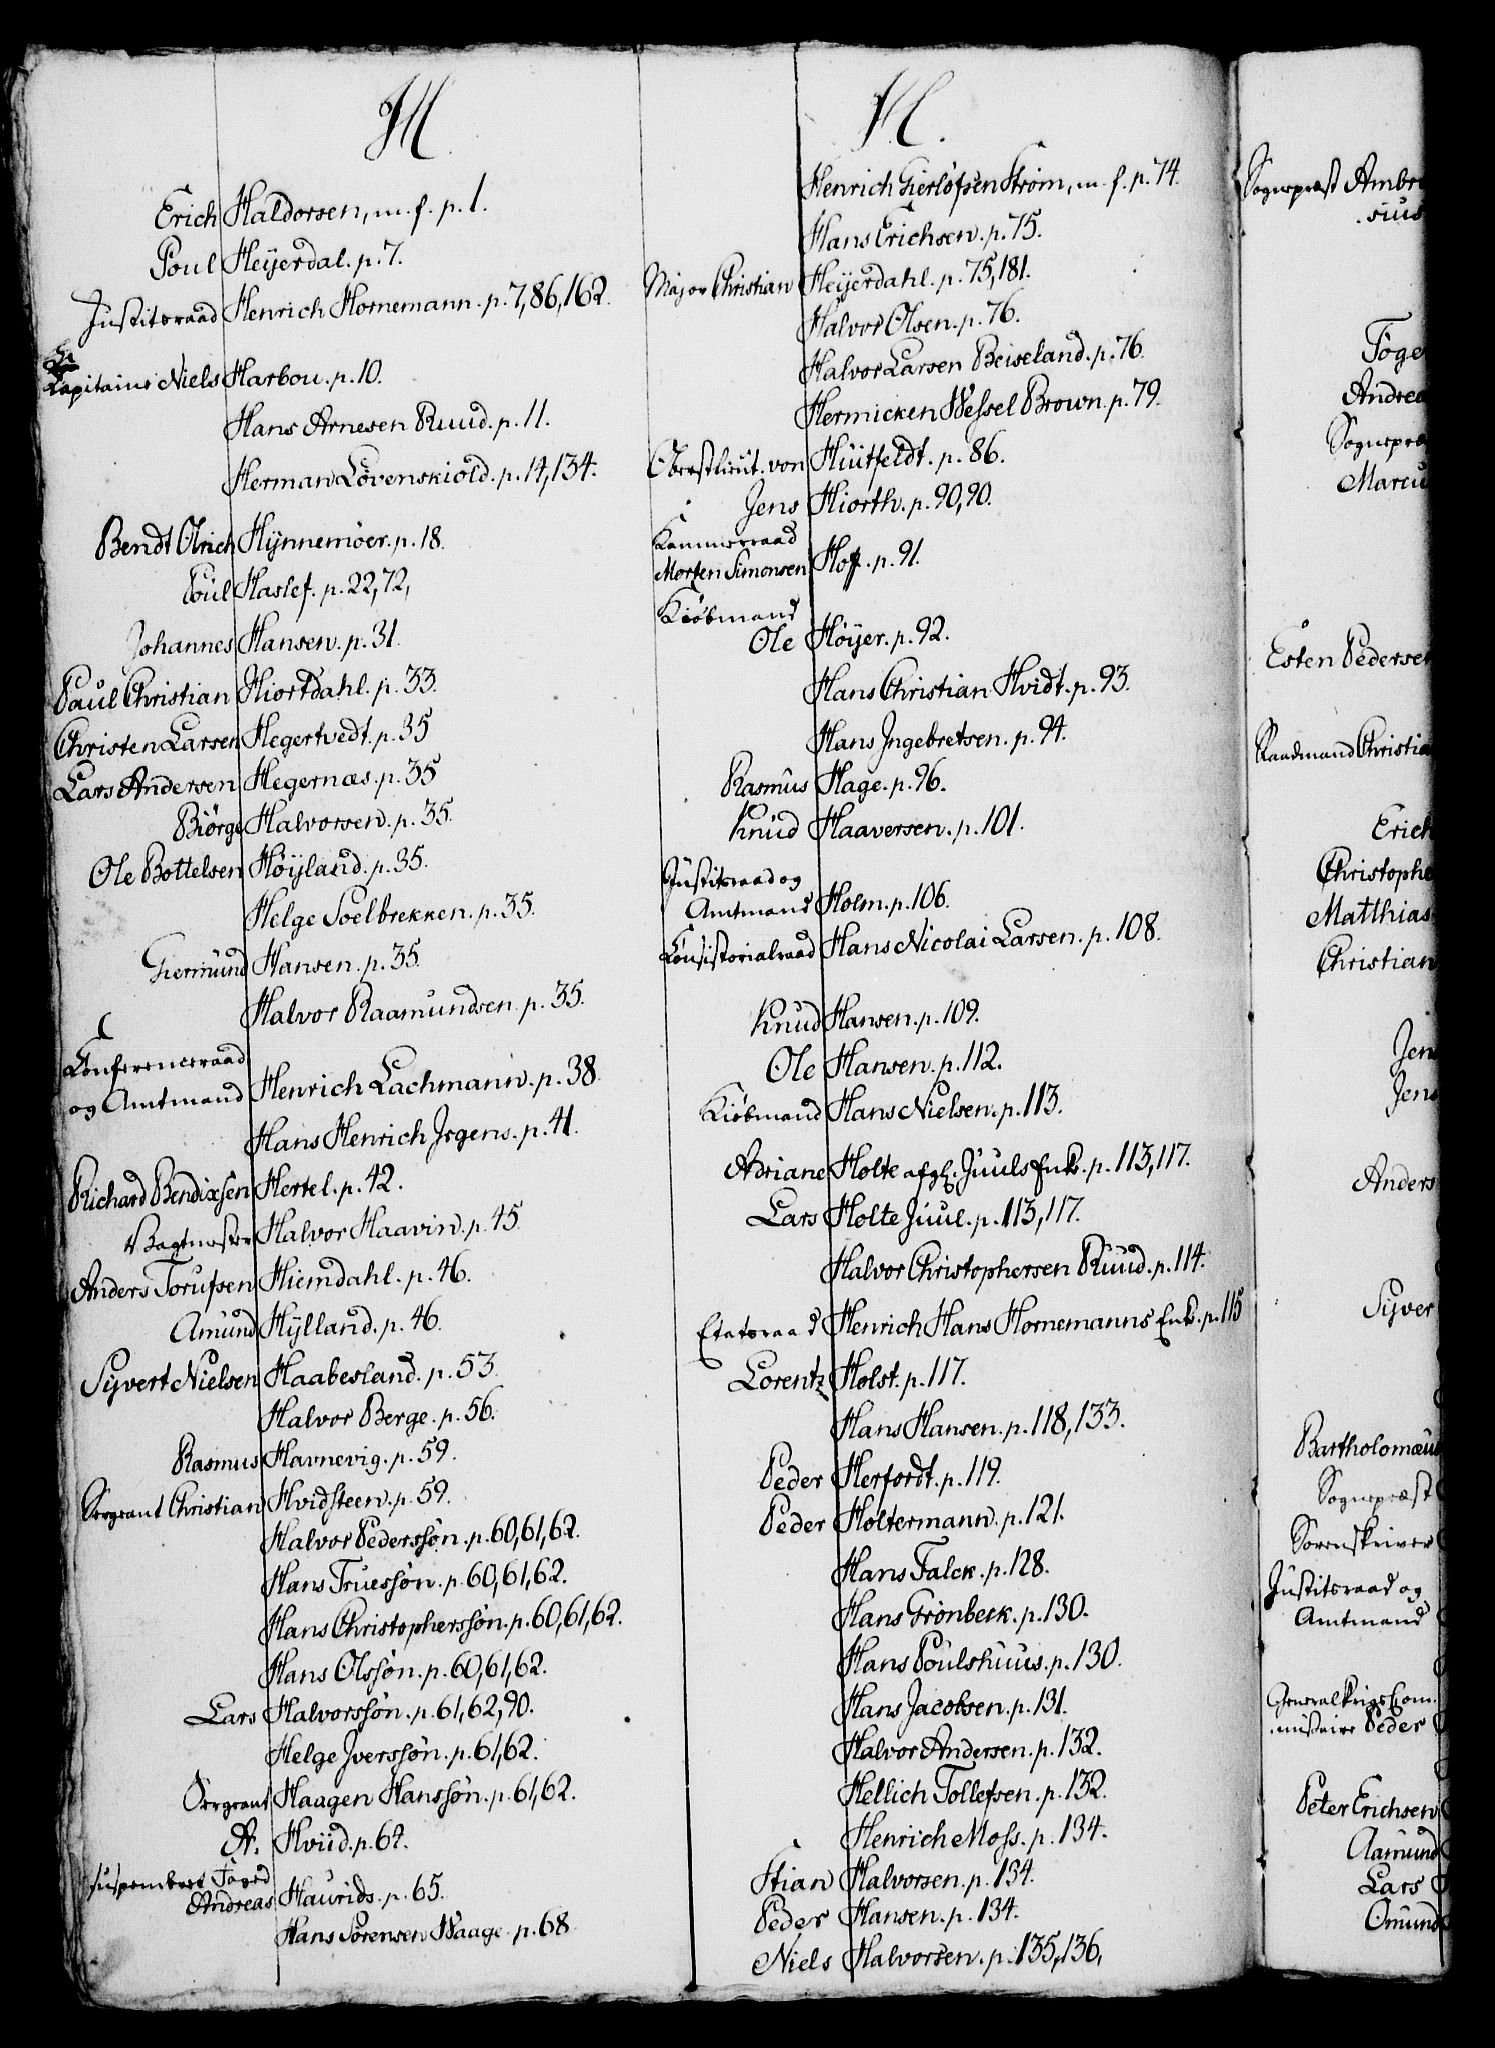 H
Erich Haldorsen, m. f. p. 1.
Poul Heÿerdal. p. 7.
Justitsraad Henrich Hornemann. p. 7, 86, 162.
Capitaine Niels Harbou. p. 10.
Hans Arnesen Ruud. p. 11.
Herman Løvenskiold. p. 14, 134.
Bendt Olrich Hÿnnemöer. p. 18.
Poul Haslef. p. 22, 72,
Johannes Hansen. p. 31.
Paul Christian Hiortdahl. p. 33.
Christen Larsen Hegertvedt. p. 35
Lars Andersen Hegernæs. p. 35
Biørge Halvorsen. p. 35.
Ole Bottelsen Høÿland. p. 35.
Helge Soelbrekken. p. 35.
Giermund Hansen. p. 35.
Halvor Raamundsen. p. 35.
Conferenceraad
og Amtmand Henrich Lachmann. p. 38.
Hans Henrich Jrgens. p. 41.
Richard Bendixsen Hertel. p. 42.
Vagtmester Halvor Haavin. p. 45.
Anders Torufsen Hiemdahl. p. 46.
Amund Hÿlland. p. 46.
Sÿvert Nielsen Haabesland. p. 53.
Halvor Berge. p. 56.
Rasmus Havnevig. p. 59.
Sergeant Christian Hvidsteen. p. 59.
Halvor Pederssøn. p. 60, 61, 62.
Hans Truessøn. p. 60, 61, 62.
Hans Christopherssøn. p. 60, 61, 62.
Hans Olssøn. p. 60, 61, 62.
Lars Halvorssøn. p. 61, 62, 90.
Helge Jverssøn. p. 61, 62.
Sergeant Haagen Hanssøn. p. 61, 62.
A. Hviid. p. 62.
suspenderet Foged
Andreas Haurids. p. 65.
Hans Sørensen Waage. p. 68
H.
Henrich Gierløfsen Strøm, m. f. p. 74.
Hans Erichsen. p. 75.
Major Christian Heÿerdahl. p. 75, 181.
Halvor Olsen. p. 76.
Halvor Larsen Beiseland. p. 76.
Hermicken Wessel Brown. p. 79.
Oberstlieut. von Huitfeldt. p. 86.
Jens Hiorth. p. 90, 90.
Kammerraad
Morten Simonsen Hoff. p. 91.
Kiøbmand
Ole Høÿer. p. 92.
Hans Christian Hvidt. p. 93.
Hans Jngebretsen. p. 94.
Rasmus Hage. p. 96.
Knud Haaversen. p. 101.
Justitsraad og
Amtmand Holm. p. 106.
Consistorialraad Hans Nicolai Larsen. p. 108.
Knud Hansen. p. 109.
Ole Hansen. p. 112.
Kiøbmand Hans Nielsen. p. 113.
Adriane Holte afgl. Juuls Enke. p. 113, 117.
Lars Holte Juul. p. 113, 117.
Halvor Christophersen Ruud. p. 114.
Etatsraad Henrich Hans Hornemanns Enke. p. 115
Lorentz Holst. p. 117.
Hans Hansen. p. 118, 133.
Peder Herfordt. p. 119.
Peder Holtermann. p. 121.
Hans Falck. p. 128.
Hans Grønbeck. p. 130.
Hans Poulshuus. p. 130.
Hans Jacobsen. p. 131.
Halvor Andersen. p. 132.
Hellich Tollefsen. p. 132.
Henrich Moss. p. 134.
Stian Halvorsen. p. 134.
Peder Hansen. p. 134.
Niels Halvorsen. p. 135, 136,
Sognepræst Ambro
.sius
Tøge
Andrea
Sognepræ
Marcu
Esten Pedersen
Raadmand Christia
Erich
Christophe
Matthias
Christian
Jen
Jens
Anders
Sÿver
Bartholomæus
Sognepræst
Sorenskriver
Justitsraad og
Amtmand
General KrigsCom-
.missaire Peder
Peter Erichsen
Aamund
Lars
Omund